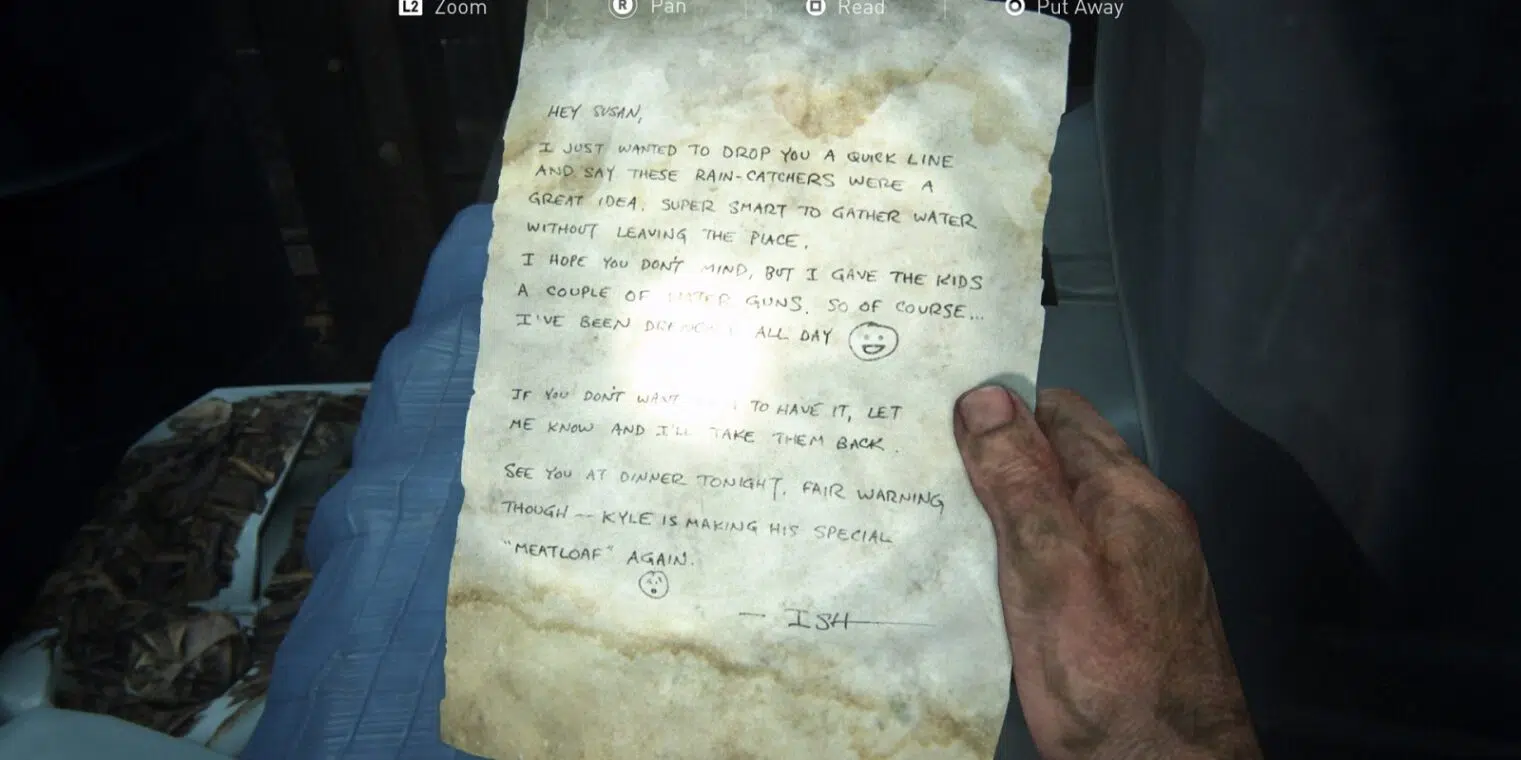 L2 Zoom R Pan Read Put Away
HEY SUSAN,
I JUST WANTED TO DROP YOU A QUICK LINE
AND SAY THESE RAIN-CATCHERS WERE A
GREAT IDEA. SUPER SMART TO GATHER WATER
WITHOUT LEAVING THE PLACE.
I HOPE YOU DON'T MIND, BUT I GAVE THE KIDS
A COUPLE OF WATER GUNS. SO OF COURSE...
I'VE BEEN ALL DAY
IF YOU DON'T WANT TO HAVE IT, LET
ME KNOW AND I'LL TAKE THEM BACK.
SEE YOU AT DINNER TONIGHT. FAIR WARNING
THOUGH -- KYLE IS MAKING HIS SPECIAL
"MEATLOAF" AGAIN.
— ISH